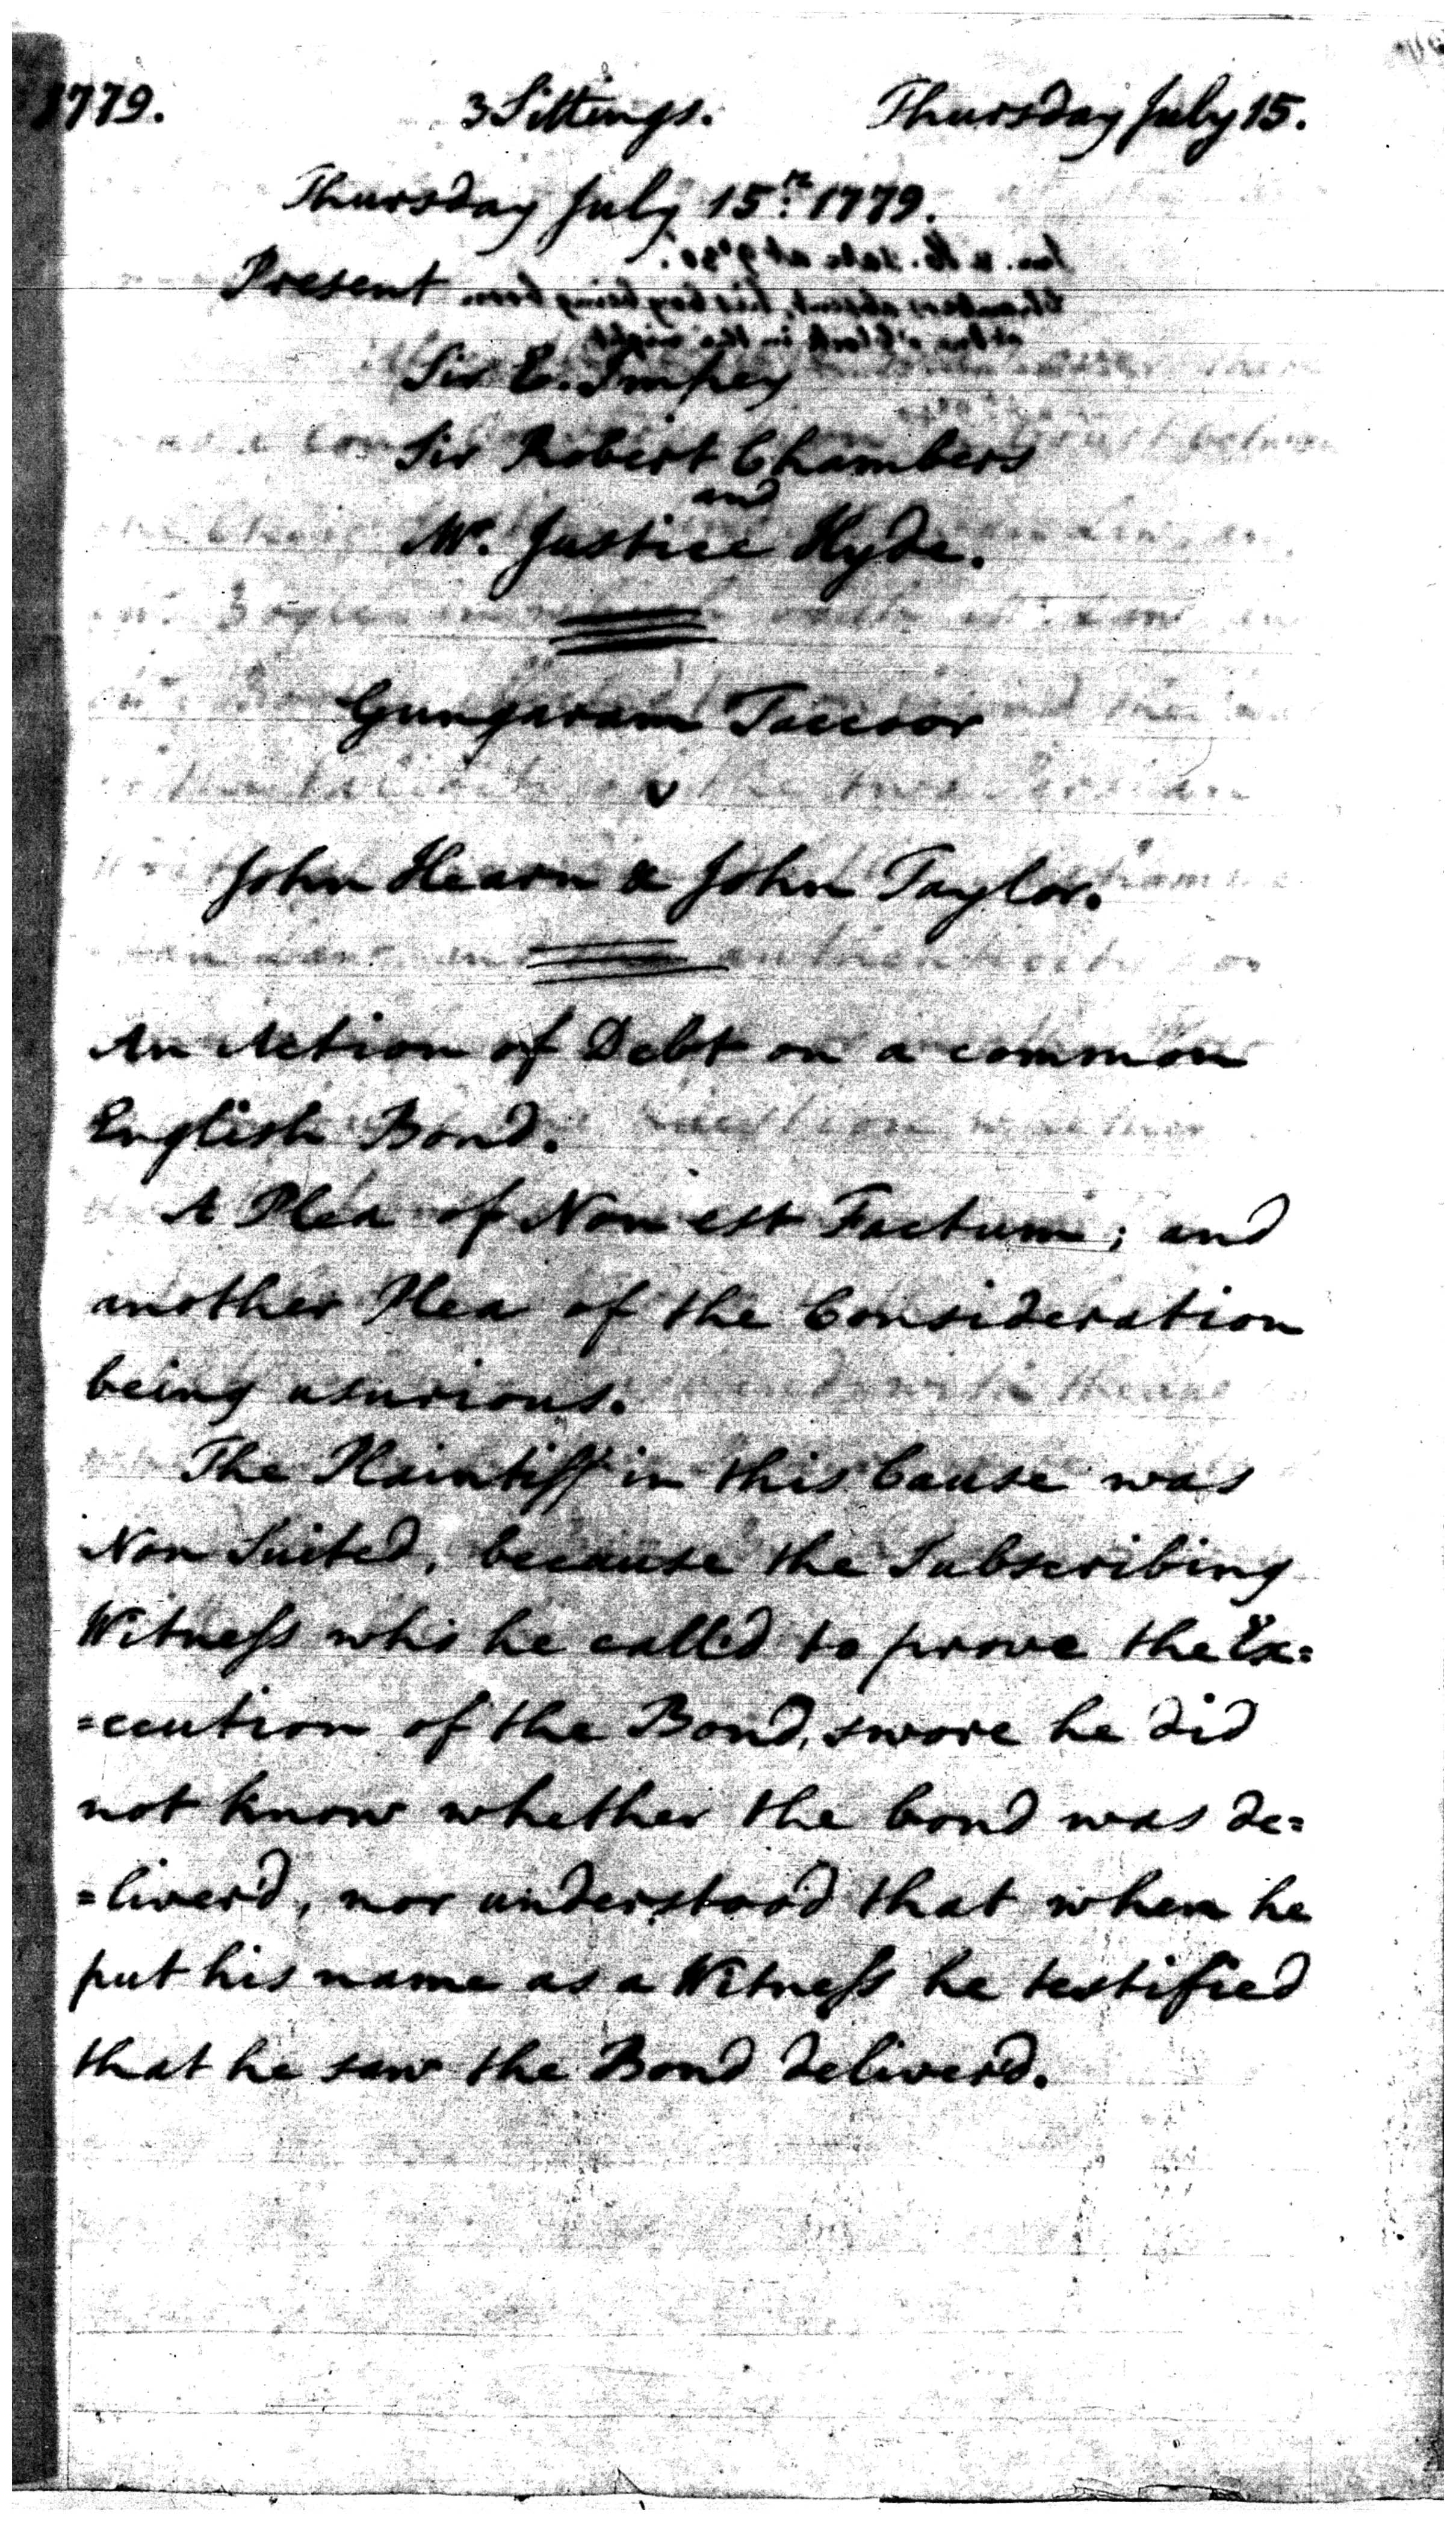 1779. 3 Sittings. Thursday July 15.
Thursday July 15th. 1779.
Present
Sir E. Impey
Sir Robert Chambers
and
Mr. Justice Hyde.
Gungaram Taccoor
v
John Hearn & John Taylor.
An Action of Debt on a common
English Bond.
A Plea of Non est Factum; and
another Plea of the Consideration
being usurious.
The Plaintiff in this Cause was
Non Suited, because the Subscribing
Witness who he called to prove the Ex=
=ecution of the Bond, swore he did
not know whether the bond was de=
=liver'd, nor understood that when he
put his name as a Witness he testified
that he saw the Bond deliverd.